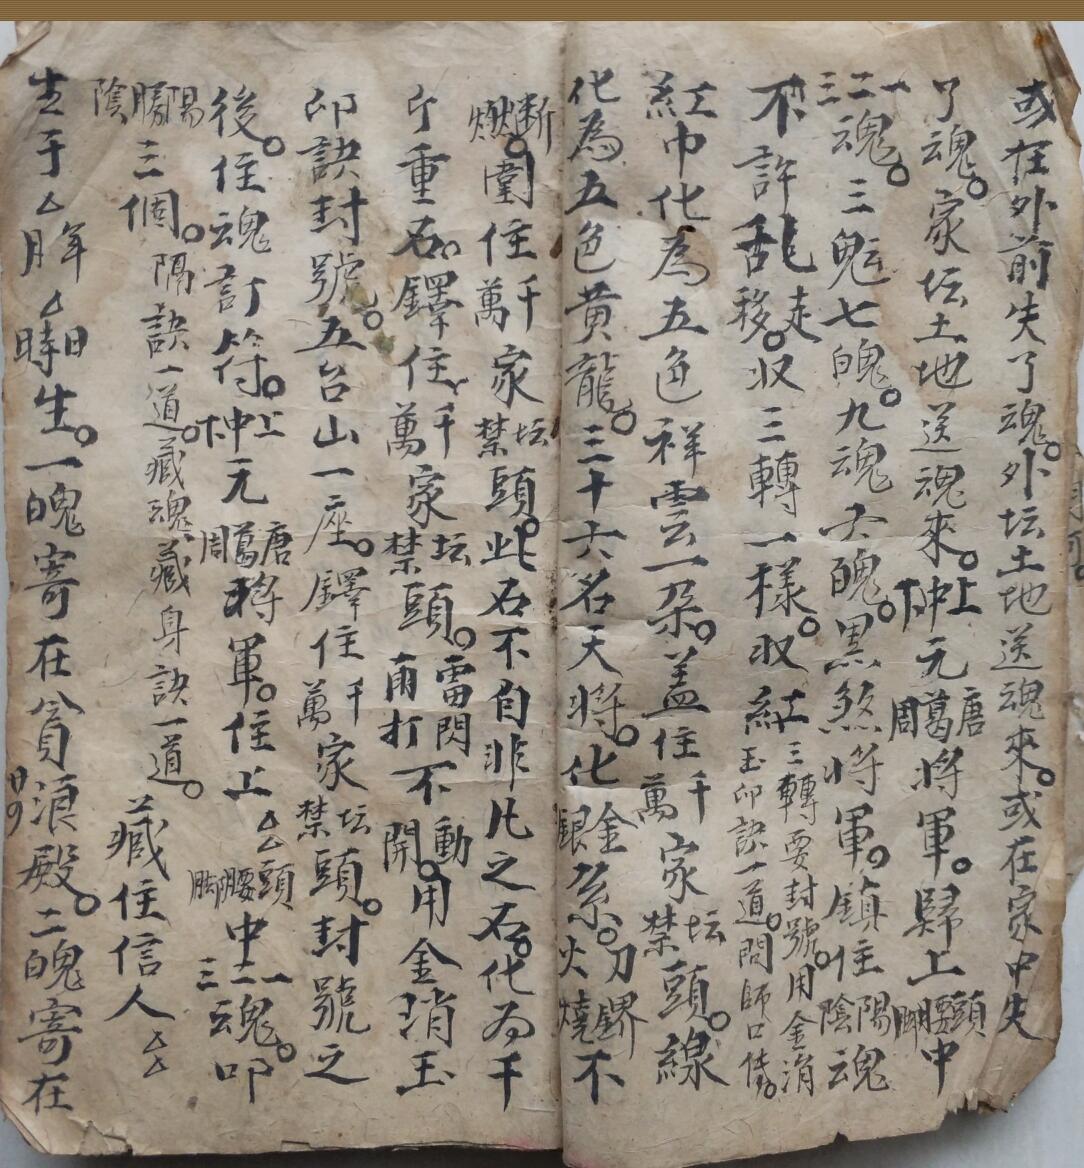 或在外前失了魂。外坛土地送魂來。或在家中失
了魂。家坛土地送魂來。上中下元唐葛周將軍。歸上頭腰脚中
一二三魂。三魂七魄。九魂六魄。黑煞將軍。鎮住陽陰魂
不許乱走移。収三轉一樣。収紅三轉要封號。用金消玉卬訣一道。問師口傳。
紅巾化為五色祥雲一朶。盖住千萬家坛禁頭。線
化為五色黄龍。三十六名天將。化金銀糸。刀火燒不
断燃。圍住千萬家坛禁頭。此石不自非凡之石。化為千
斤重石。鐸住千萬家坛禁頭。雷閃雨打不動開。用金消玉
卬訣封號。五台山一座。鐸住千萬家坛禁頭。封號之
後。住魂討符。上中下元唐葛周將軍。住上厶頭腰脚中一二三魂。叩
陽勝陰三個。隔訣一道。藏魂藏身訣一道。藏住信人厶厶
生于厶年月厶日時生。一魄寄在貪浪殿。二魄寄在